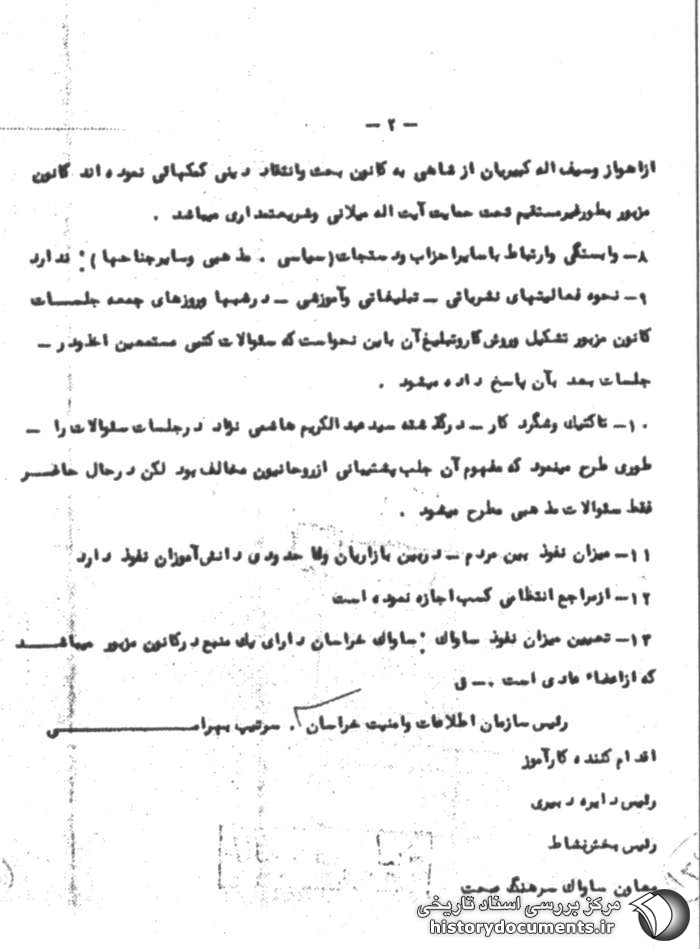 - ۲ -
ازاهواز وسیف اله کبیریان از شاهی به کانون بحث وانتقاد دینی کمکهائی نموده اند کانون
مزبور بطورغیرمستقیم تحت حمایت آیت اله میلانی وشریعتمداری میباشد .
۸- وابستگی وارتباط باسایراحزاب ودستجات(سیاسی . مذهبی وسایرجناحها) : ندارد
۹- نحوه فعالیتهای نشریاتی - تبلیغاتی وآموزشی - درشبها وروزهای جمعه جلسات
کانون مزبور تشکیل وروش کاروتبلیغ آن باین نحواست که سئوالات کتبی مستمعین اخذودر -
جلسات بعد بآن پاسخ داده میشود .
۱۰- تاکتیک وشگرد کار - درگذشته سیدعبدالکریم هاشمی نژاد درجلسات سئوالات را -
طوری طرح مینمود که مفهوم آن جلب پشتیبانی ازروحانیون مخالف بود لکن درحال حاضر
فقط سئوالات مذهبی مطرح میشود .
۱۱- میزان نفوذ بین مردم - دربین بازاریان وتا حدودی دانش آموزان نفوذ دارد
۱۲- ازمراجع انتظامی کسب اجازه نموده است
۱۳- تعیین میزان نفوذ ساواک : ساواک خراسان دارای یک منبع درکانون مزبور میباشد
که ازاعضاء عادی است .- ق
رئیس سازمان اطلاعات وامنیت خراسان . سرتیپ بهرامی
اقدام کننده کارآموز
رئیس دایره دبیری
رئیس بخش نشاط
معاون ساواک سرهنگ صحت
مرکز بررسی اسناد تاریخی
historydocuments.ir